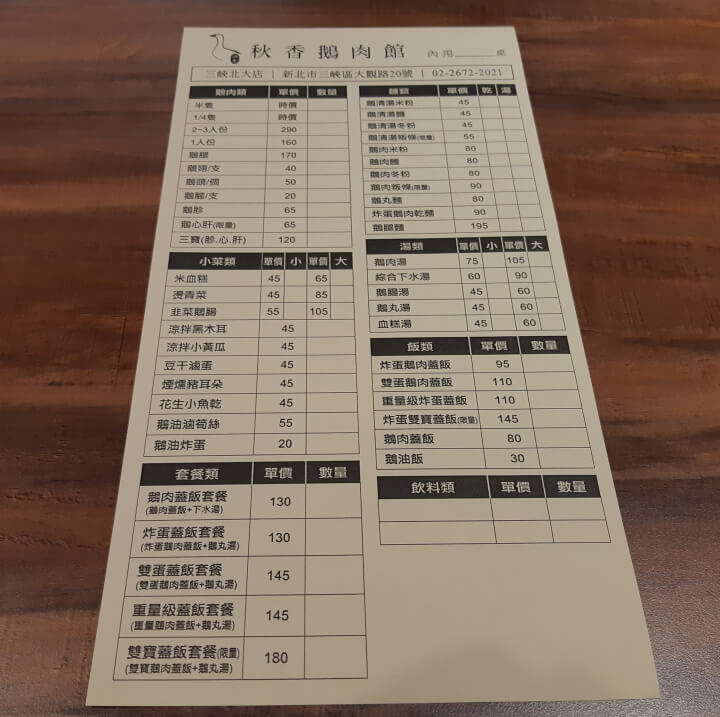 秋香鵝肉館 內用____桌
三峽北大店 | 新北市三峽區大觀路20號 | 02-2672-2021
鵝肉類 單價 數量
半隻 時價
1/4隻 時價
2~3人份 290
1人份 160
鵝腿 170
鵝翅/支 40
鵝頭/個 50
鵝腳/支 20
鵝胗 65
鵝心肝(限量) 65
三寶(胗.心.肝) 120
小菜類 單價 小 單價 大
米血糕 45 65
燙青菜 45 85
韭菜鵝腸 55 105
涼拌黑木耳 45
涼拌小黃瓜 45
豆干滷蛋 45
煙燻豬耳朵 45
花生小魚乾 45
鵝油滷筍絲 55
鵝油炸蛋 20
套餐類 單價 數量
鵝肉蓋飯套餐 130
(鵝肉蓋飯+下水湯)
炸蛋蓋飯套餐 130
(炸蛋鵝肉蓋飯+鵝丸湯)
雙蛋蓋飯套餐 145
(雙蛋鵝肉蓋飯+鵝丸湯)
重量級蓋飯套餐 145
(重量鵝肉蓋飯+鵝丸湯)
雙寶蓋飯套餐(限量) 180
(雙寶鵝肉蓋飯+鵝丸湯)
麵類 單價 乾 湯
鵝清湯米粉 45
鵝清湯麵 45
鵝清湯冬粉 45
鵝清湯粄條(限量) 55
鵝肉米粉 80
鵝肉麵 80
鵝肉冬粉 80
鵝肉粄條(限量) 90
鵝丸麵 80
炸蛋鵝肉乾麵 90
鵝腿麵 195
湯類 單價 小 單價 大
鵝肉湯 75 105
綜合下水湯 60 90
鵝腸湯 45 60
鵝丸湯 45 60
血糕湯 45 60
飯類 單價 數量
炸蛋鵝肉蓋飯 95
雙蛋鵝肉蓋飯 110
重量級炸蛋蓋飯 110
炸蛋雙寶蓋飯(限量) 145
鵝肉蓋飯 80
鵝油飯 30
飲料類 單價 數量